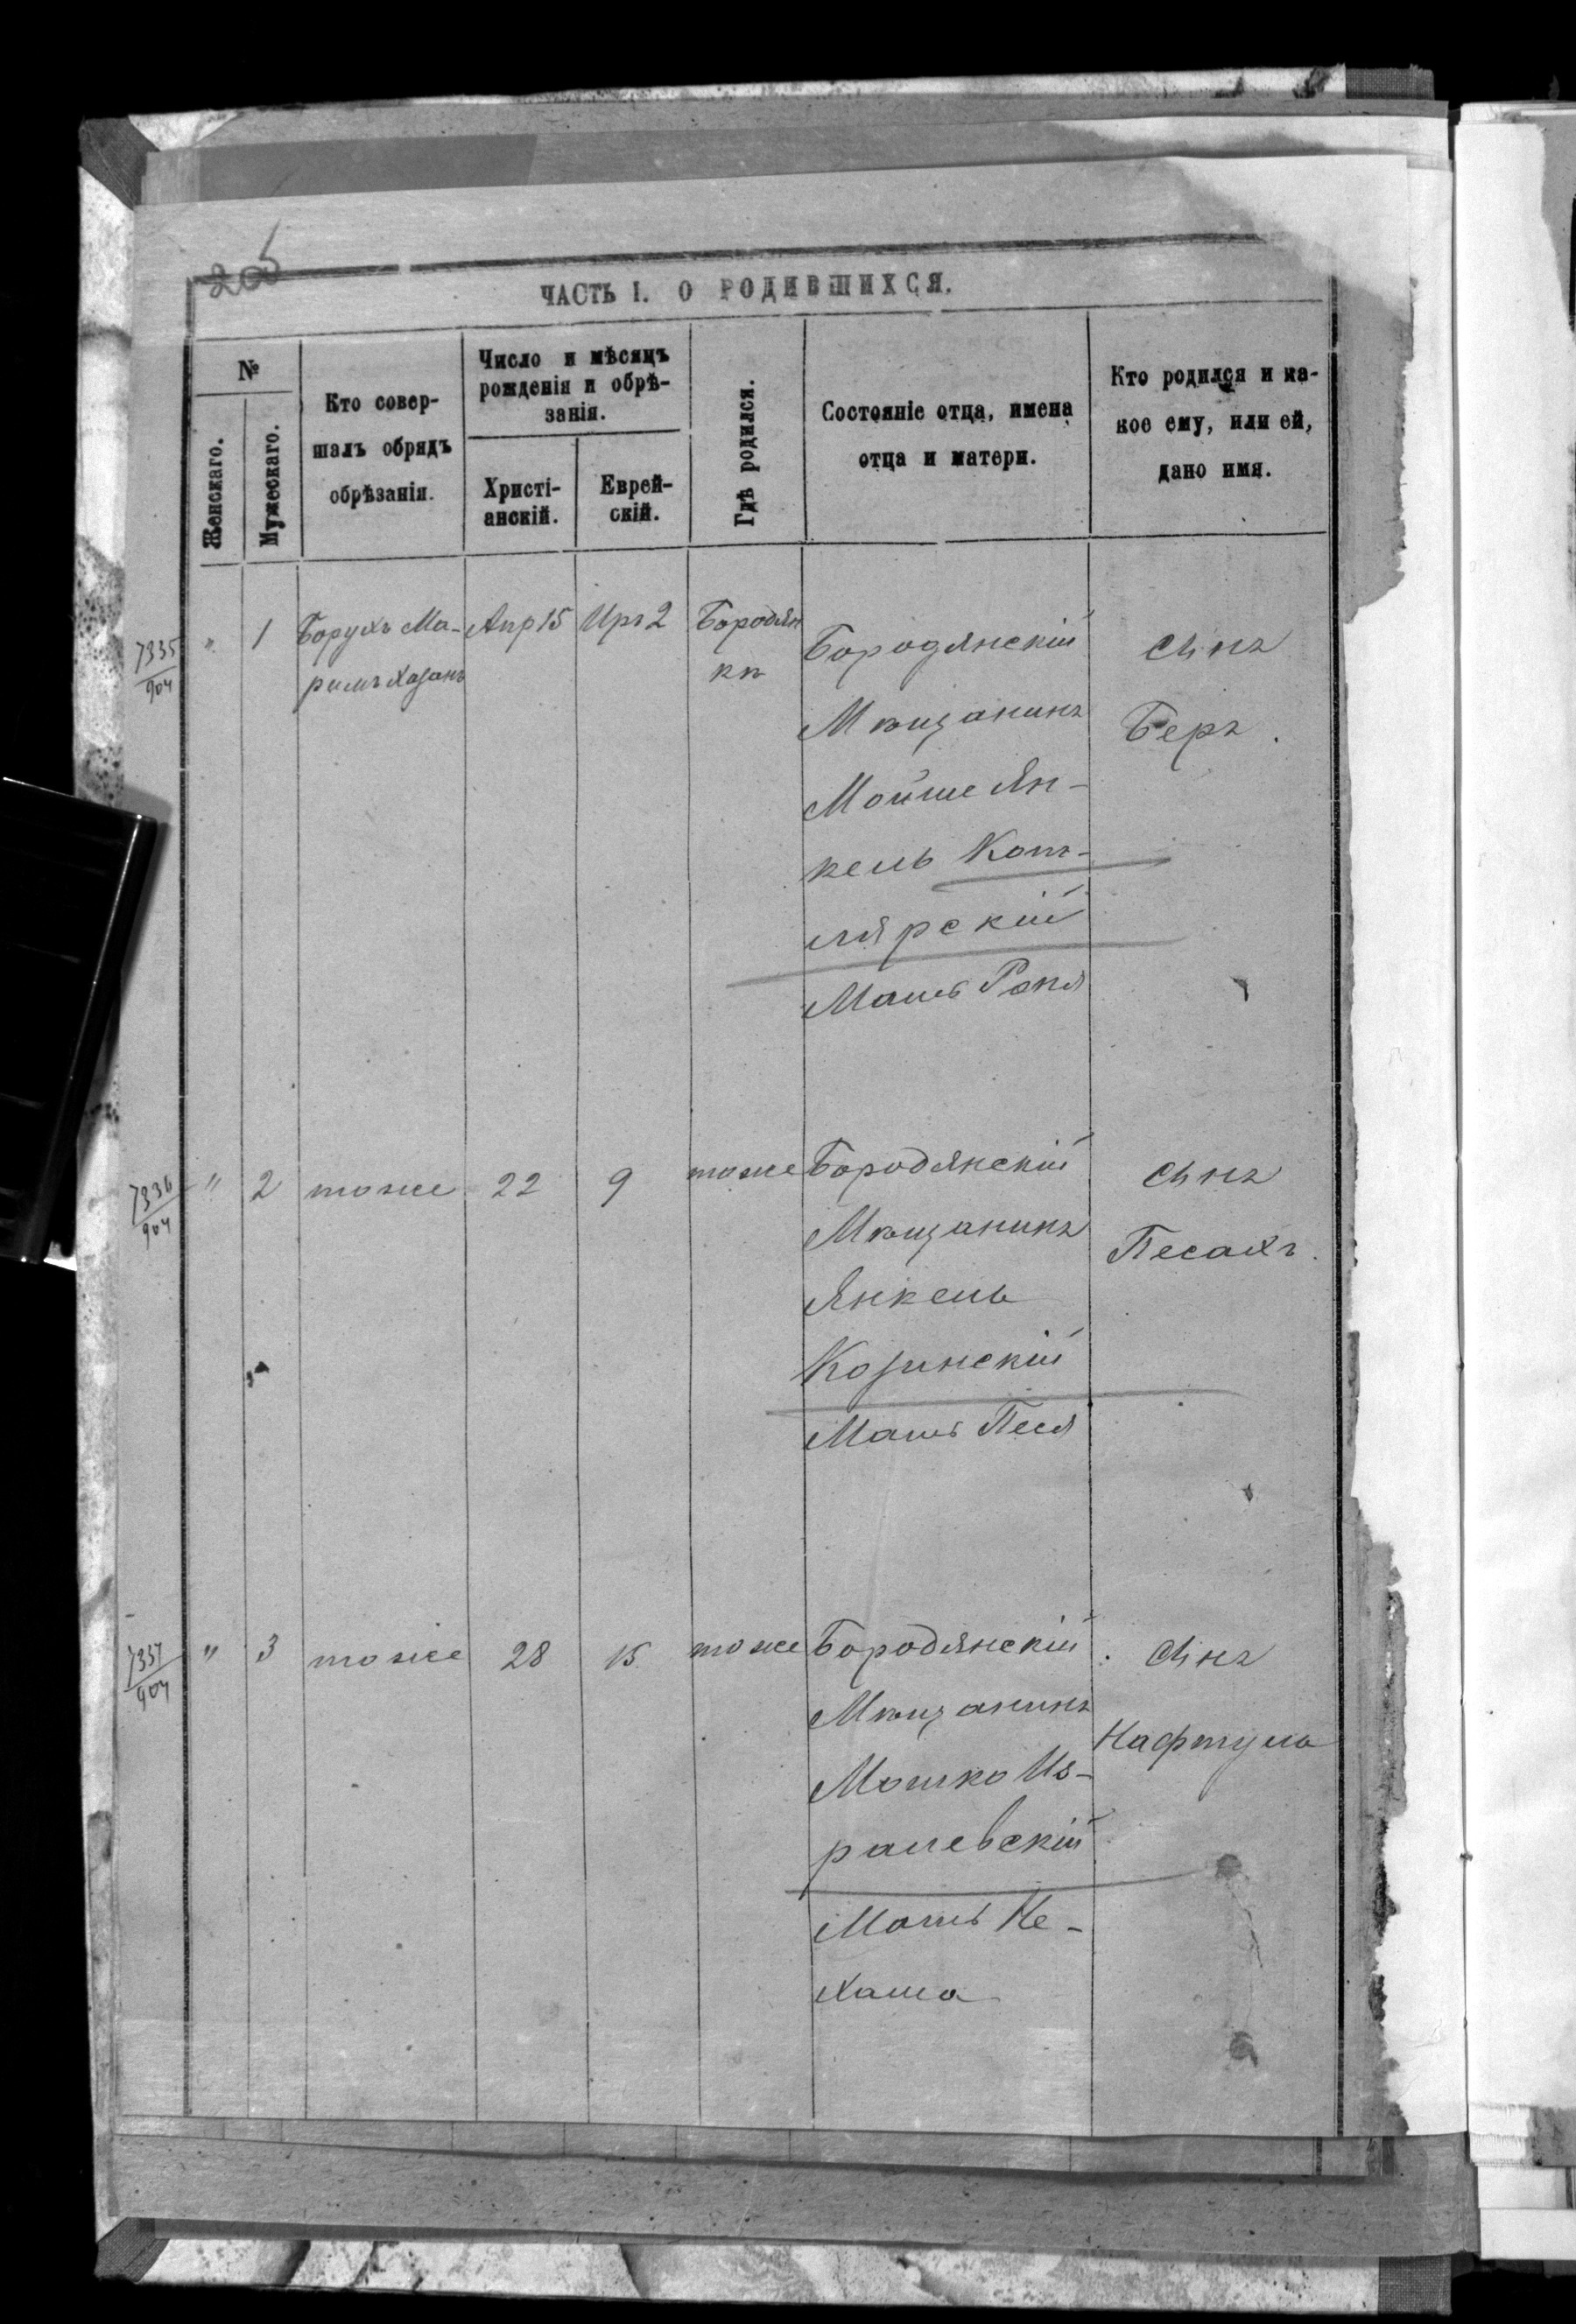 205
ЧАСТЬ I. О РОДИВШИХСЯ.
№
Женскаго.
Мужескаго.
Кто совер-
шалъ обрядъ
обрѣзанія.
Число и мѣсяцъ
рожденія и обрѣ-
занія.
Христі-
анскій.
Еврей-
скій.
Гдѣ родился.
Состояніе отца, имена
отца и матери.
Кто родился и ка-
кое ему, или ей,
дано имя.
7335
904
"
1
Борухъ Ма-
римъ Хазанъ
Апр 15
Иръ 2
Бородян
кѣ
Бородянскій
Мѣщанинъ
Мойше Ян-
кель Кот-
лярскій
Мать
Сынъ
Беръ.
7336
904
"
2
тоже
22
9
тоже
Бородянскій
Мѣщанинъ
Янкель
Козинскій
Мать Песя
Сынъ
Песахъ.
7337
904
"
3
тоже
28
15
тоже
Бородянскій
Мѣщанинъ
Мошко Из-
ралевскій
Мать Не-
хама
Сынъ
Нафтула